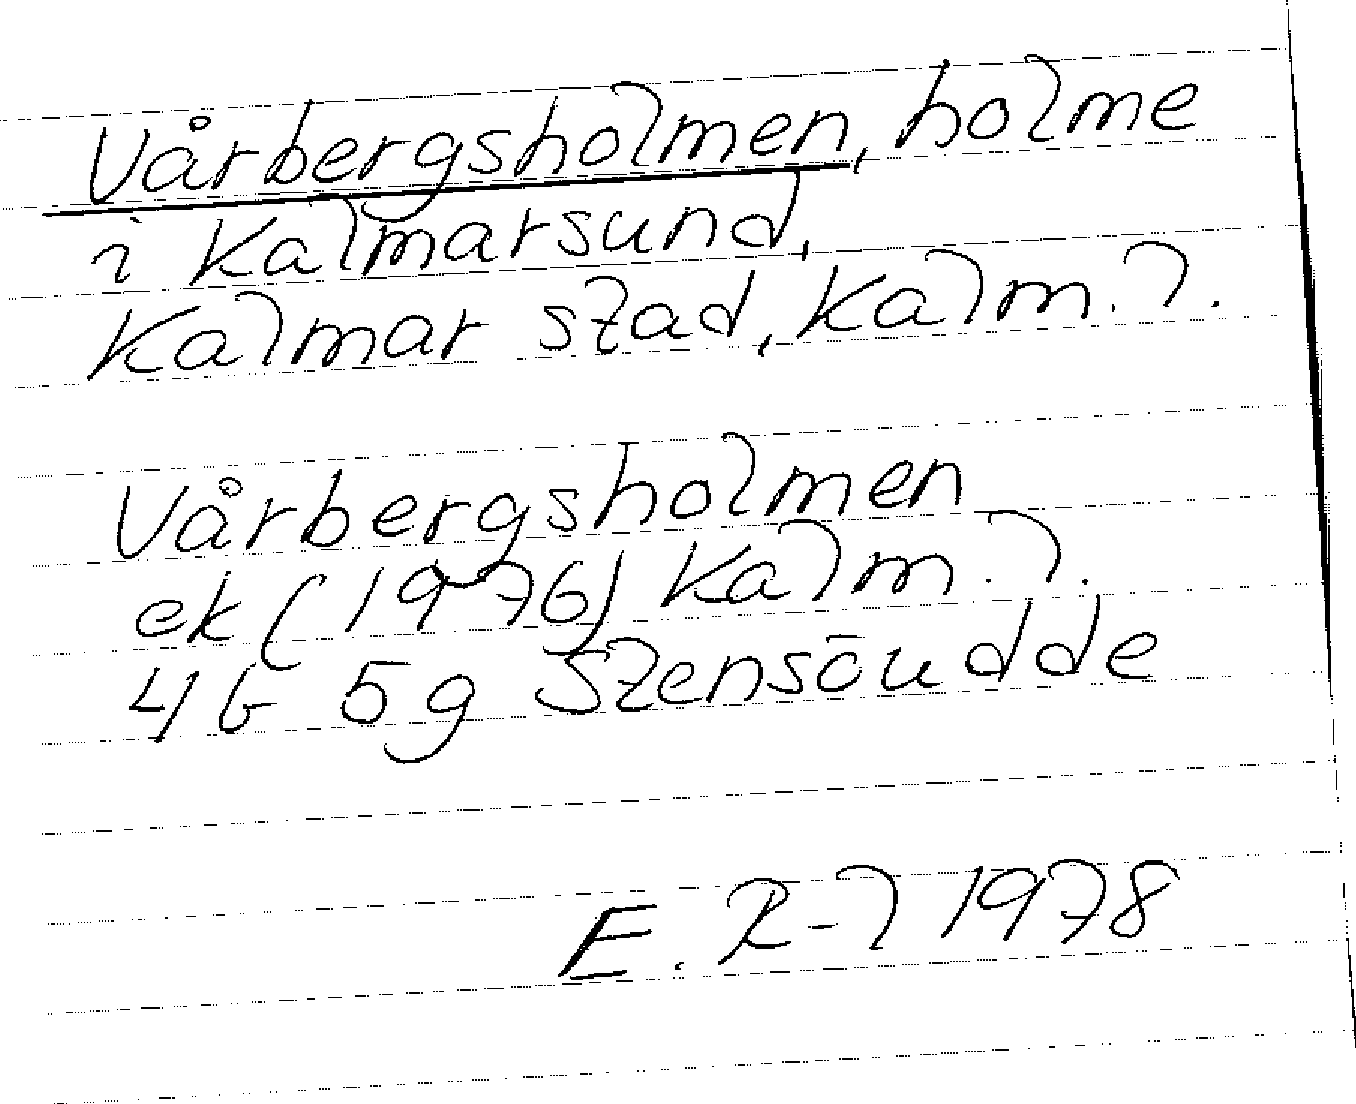 Vårbergsholmen, holme
i Kalmarsund,
Kalmar stad, Kalm. l.
Vårbergsholmen
ek (1976) Kalm. l.
4G 5g Stensöudde
E. R-l 1978